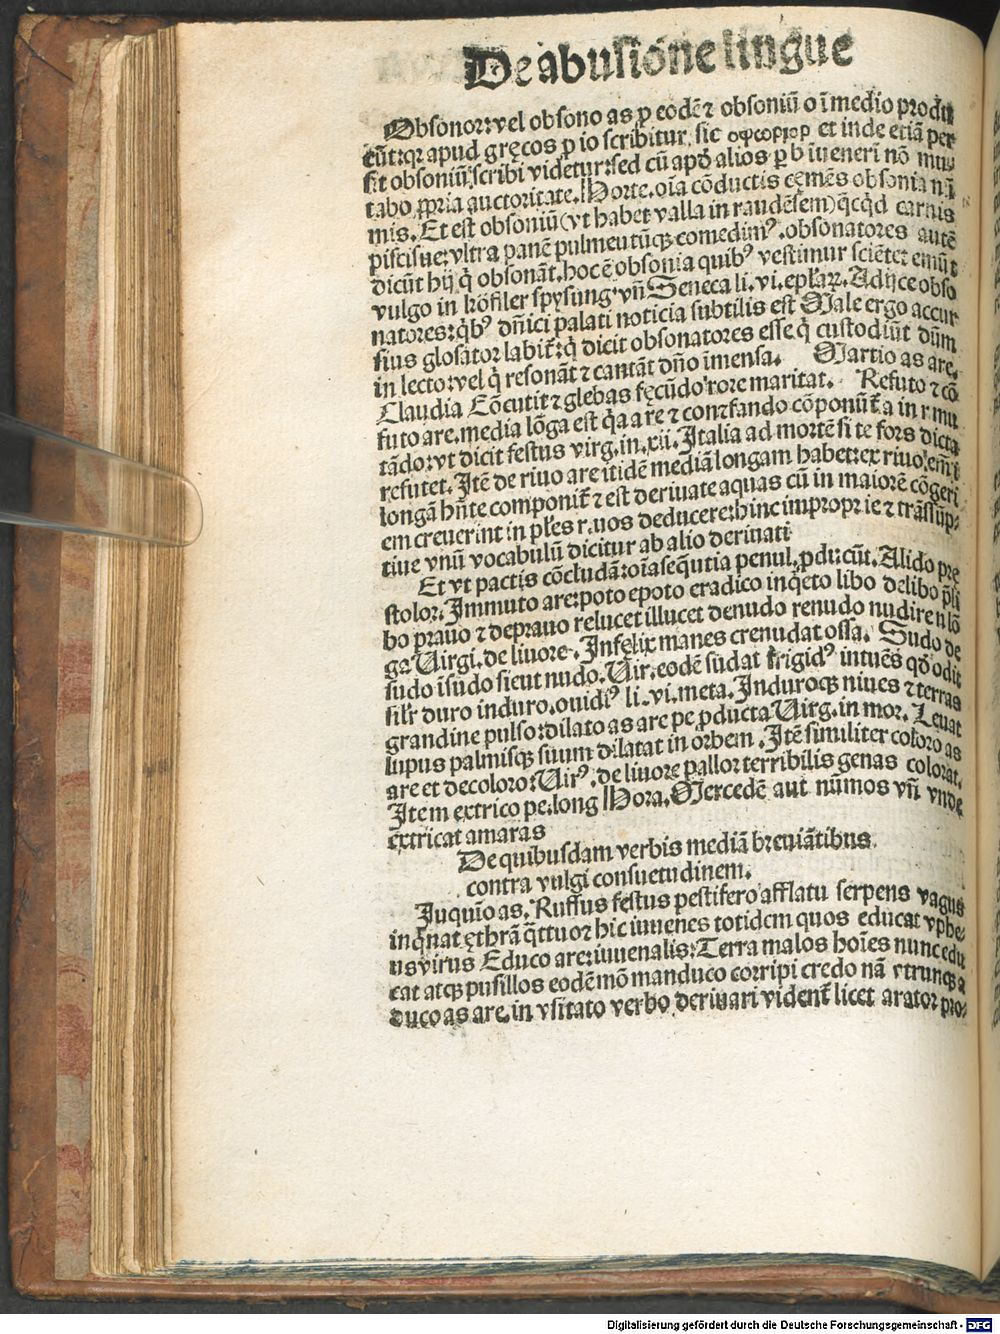 De abusiōne lingue
Obsonor: vel obsono as p̱ eodē ⁊ obsoniū o ī medio produ
cūt: qꝛ apud gręcos p̱ io scribitur, sic et inde etiā per
sit obsoniū scribi videtur: sed cū apd̕ alios p̱ b iueneri nō mu-
tabo ꝓpria auctoritate. Horte. oīa cōductis cęmēs obsonia nūi
mis. Et est obsoniū (vt habet valla in raudēsem) q̄cq̇d carnis
piscisue: vltra panē pulmentūqꝫ comedimꝰ. obsonatores autē
dicūt hij q̇ obsonāt. hoc ē obsonia quibꝰ vestimur sciēter emūt
vulgo in köfiler spysung. vn̄ Seneca li. vi. epl̄aꝝ. Adijce obso
natores: q̇bꝰ dn̄ici palati noticia subtilis est Male ergo accur
sius glosator labit̄: q̇ dicit obsonatores esse q̇ custodiūt dūm
in lecto: vel q̇ resonāt ⁊ cantāt dn̄o īmensa. Martio as are.
Claudia Cōcutit ⁊ glebas fęcūdo rore maritat. Refuto ⁊ cō
futo are. media lōga est q̇a a re ⁊ con⁊fando cōponūt̄ a in r mu
tādo: vt dicit festus virg. in. xii. Italia ad mortē si te fors dicta
refutet. Itē de riuo are itidē mediā longam habet: ex riuo. em̄ i
longā hn̄te componit̄ ⁊ est deriuate aquas cū in maiorē cōgeri
em creuerint in pl̄es riuos deducere: hinc impropr ie ⁊ trāssūp-
tiue vnū vocabulū dicitur ab alio deriuati
Et vt pactis cōcludā: oīa seq̄utia penul. ꝓducūt. Alido pre
stolor. Immuto are: poto epoto eradico inq̇eto libo delibo p̄li
bo prauo ⁊ deprauo relucet illucet denudo renudo nudire n lō
ga Virgi. de liuore. Infęlix manes crenudat ossa. Sudo de
sudo īsudo sicut nudo. Vir. eodē sudat frigidꝰ intuēs qd̕ odit
sil̄r duro induro. ouidiꝰ li. vi. meta. Induroqꝫ niues ⁊ terras
grandine pulso: dilato as are pe ꝓducta Virg. in mor. Leuat
lupus palmisqꝫ suum dilatat in orbem. Itē similiter coloro as
are et decoloro: Virꝰ. de liuore pallor terribilis genas colorat.
Item extrico pe. long Hora. Mercedē aut nūmos vn̄ vnde
extricat amaras
De quibusdam verbis mediā breuiātibus
contra vulgi consuetudinem.
Inquīo as. Ruffus festus pestifero afflatu serpens vagus
inq̇nat ęthrā q̄ttuor hic iuuenes totidem quos educat vphe-
us virus Educo are: iuuenalis: Terra malos hoīes nunc edu
cat atqꝫ pusillos eodē mō manduco corripi credo nā vtrunqꝫ a
duco as are. in vsitato verbo deriuari vident̄ licet arator pro-
Digitalisierung gefördert durch die Deutsche Forschungsgemeinschaft - DFG